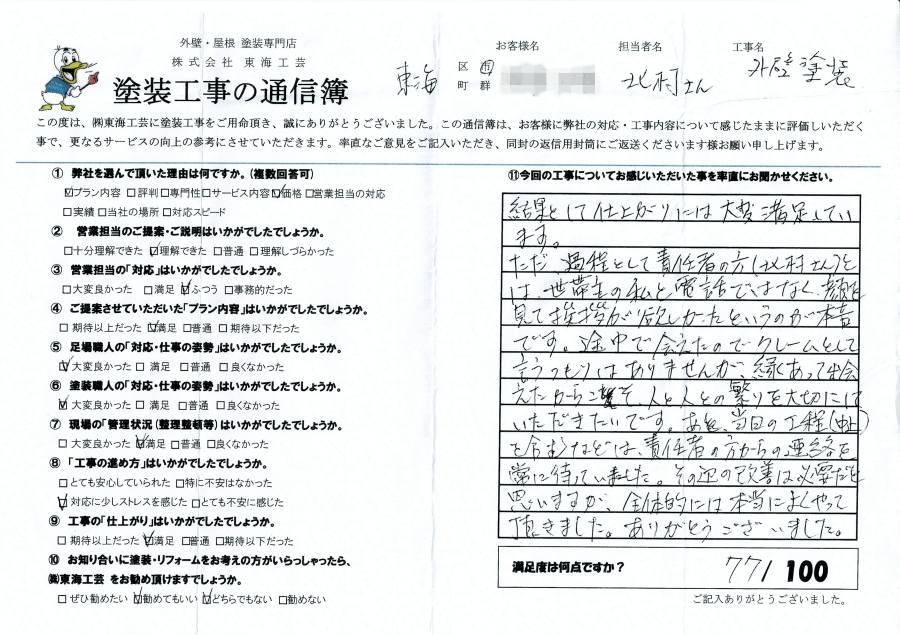 外壁・屋根 塗装専門店
株式会社 東海工芸
塗装工事の通信簿
お客様名 担当者名 工事名
東海 区 市 町 郡 北村さん 外壁塗装
この度は、㈱東海工芸に塗装工事をご用命頂き、誠にありがとうございました。この通信簿は、お客様に弊社の対応・工事内容について感じたままに評価しいただく
事で、更なるサービスの向上の参考にさせていただきます。率直なご意見をご記入いただき、同封の返信用封筒にご返送くださいます様お願い申し上げます。
① 弊社を選んで頂いた理由は何ですか。(複数回答可)
☑プラン内容 □評判 □専門性 □サービス内容 ☑価格 □営業担当の対応
□実績 □当社の場所 □対応スピード
② 営業担当のご提案・ご説明はいかがでしたでしょうか。
□十分理解できた ☑理解できた □普通 □理解しづらかった
③ 営業担当の「対応」はいかがでしたでしょうか。
□大変良かった □満足 ☑ふつう □事務的だった
④ ご提案させていただいた「プラン内容」はいかがでしたでしょうか。
□期待以上だった ☑満足 □普通 □期待以下だった
⑤ 足場職人の「対応・仕事の姿勢」はいかがでしたでしょうか。
☑大変良かった □満足 □普通 □良くなかった
⑥ 塗装職人の「対応・仕事の姿勢」はいかがでしたでしょうか。
☑大変良かった □満足 □普通 □良くなかった
⑦ 現場の「管理状況(整理整頓等)はいかがでしたでしょうか。
□大変良かった ☑満足 □普通 □良くなかった
⑧ 「工事の進め方」はいかがでしたでしょうか。
□とても安心していられた □特に不安はなかった
☑対応に少しストレスを感じた □とても不安に感じた
⑨ 工事の「仕上がり」はいかがでしたでしょうか。
□期待以上だった ☑満足 □普通 □期待以下だった
⑩ お知り合いに塗装・リフォームをお考えの方がいらっしゃったら、
㈱東海工芸 をお勧め頂けますでしょうか。
□ぜひ勧めたい ☑勧めてもいい ☑どちらでもない □勧めない
⑪今回の工事についてお感じいただいた事を率直にお聞かせください。
結果として仕上がりには大変満足してい
ます。
ただ、過程として責任者の方(北村さん)と
は、世帯主の私と電話ではなく、顔を
見て挨拶が欲しかったというのが本音
です。途中で会えたのでクレームとして
言うつもりはありませんが、縁あって出会
えたからこそ、人と人との繋りを大切にして
いただきたいです。あと、当日の工程(中止)
を含むなどは、責任者の方からの連絡を
常に待っていました。その辺の改善は必要だと
思いますが、全体的には本当によくやって
頂きました。ありがとうございました。
満足度は何点ですか? 77/ 100
ご記入ありがとうございました。